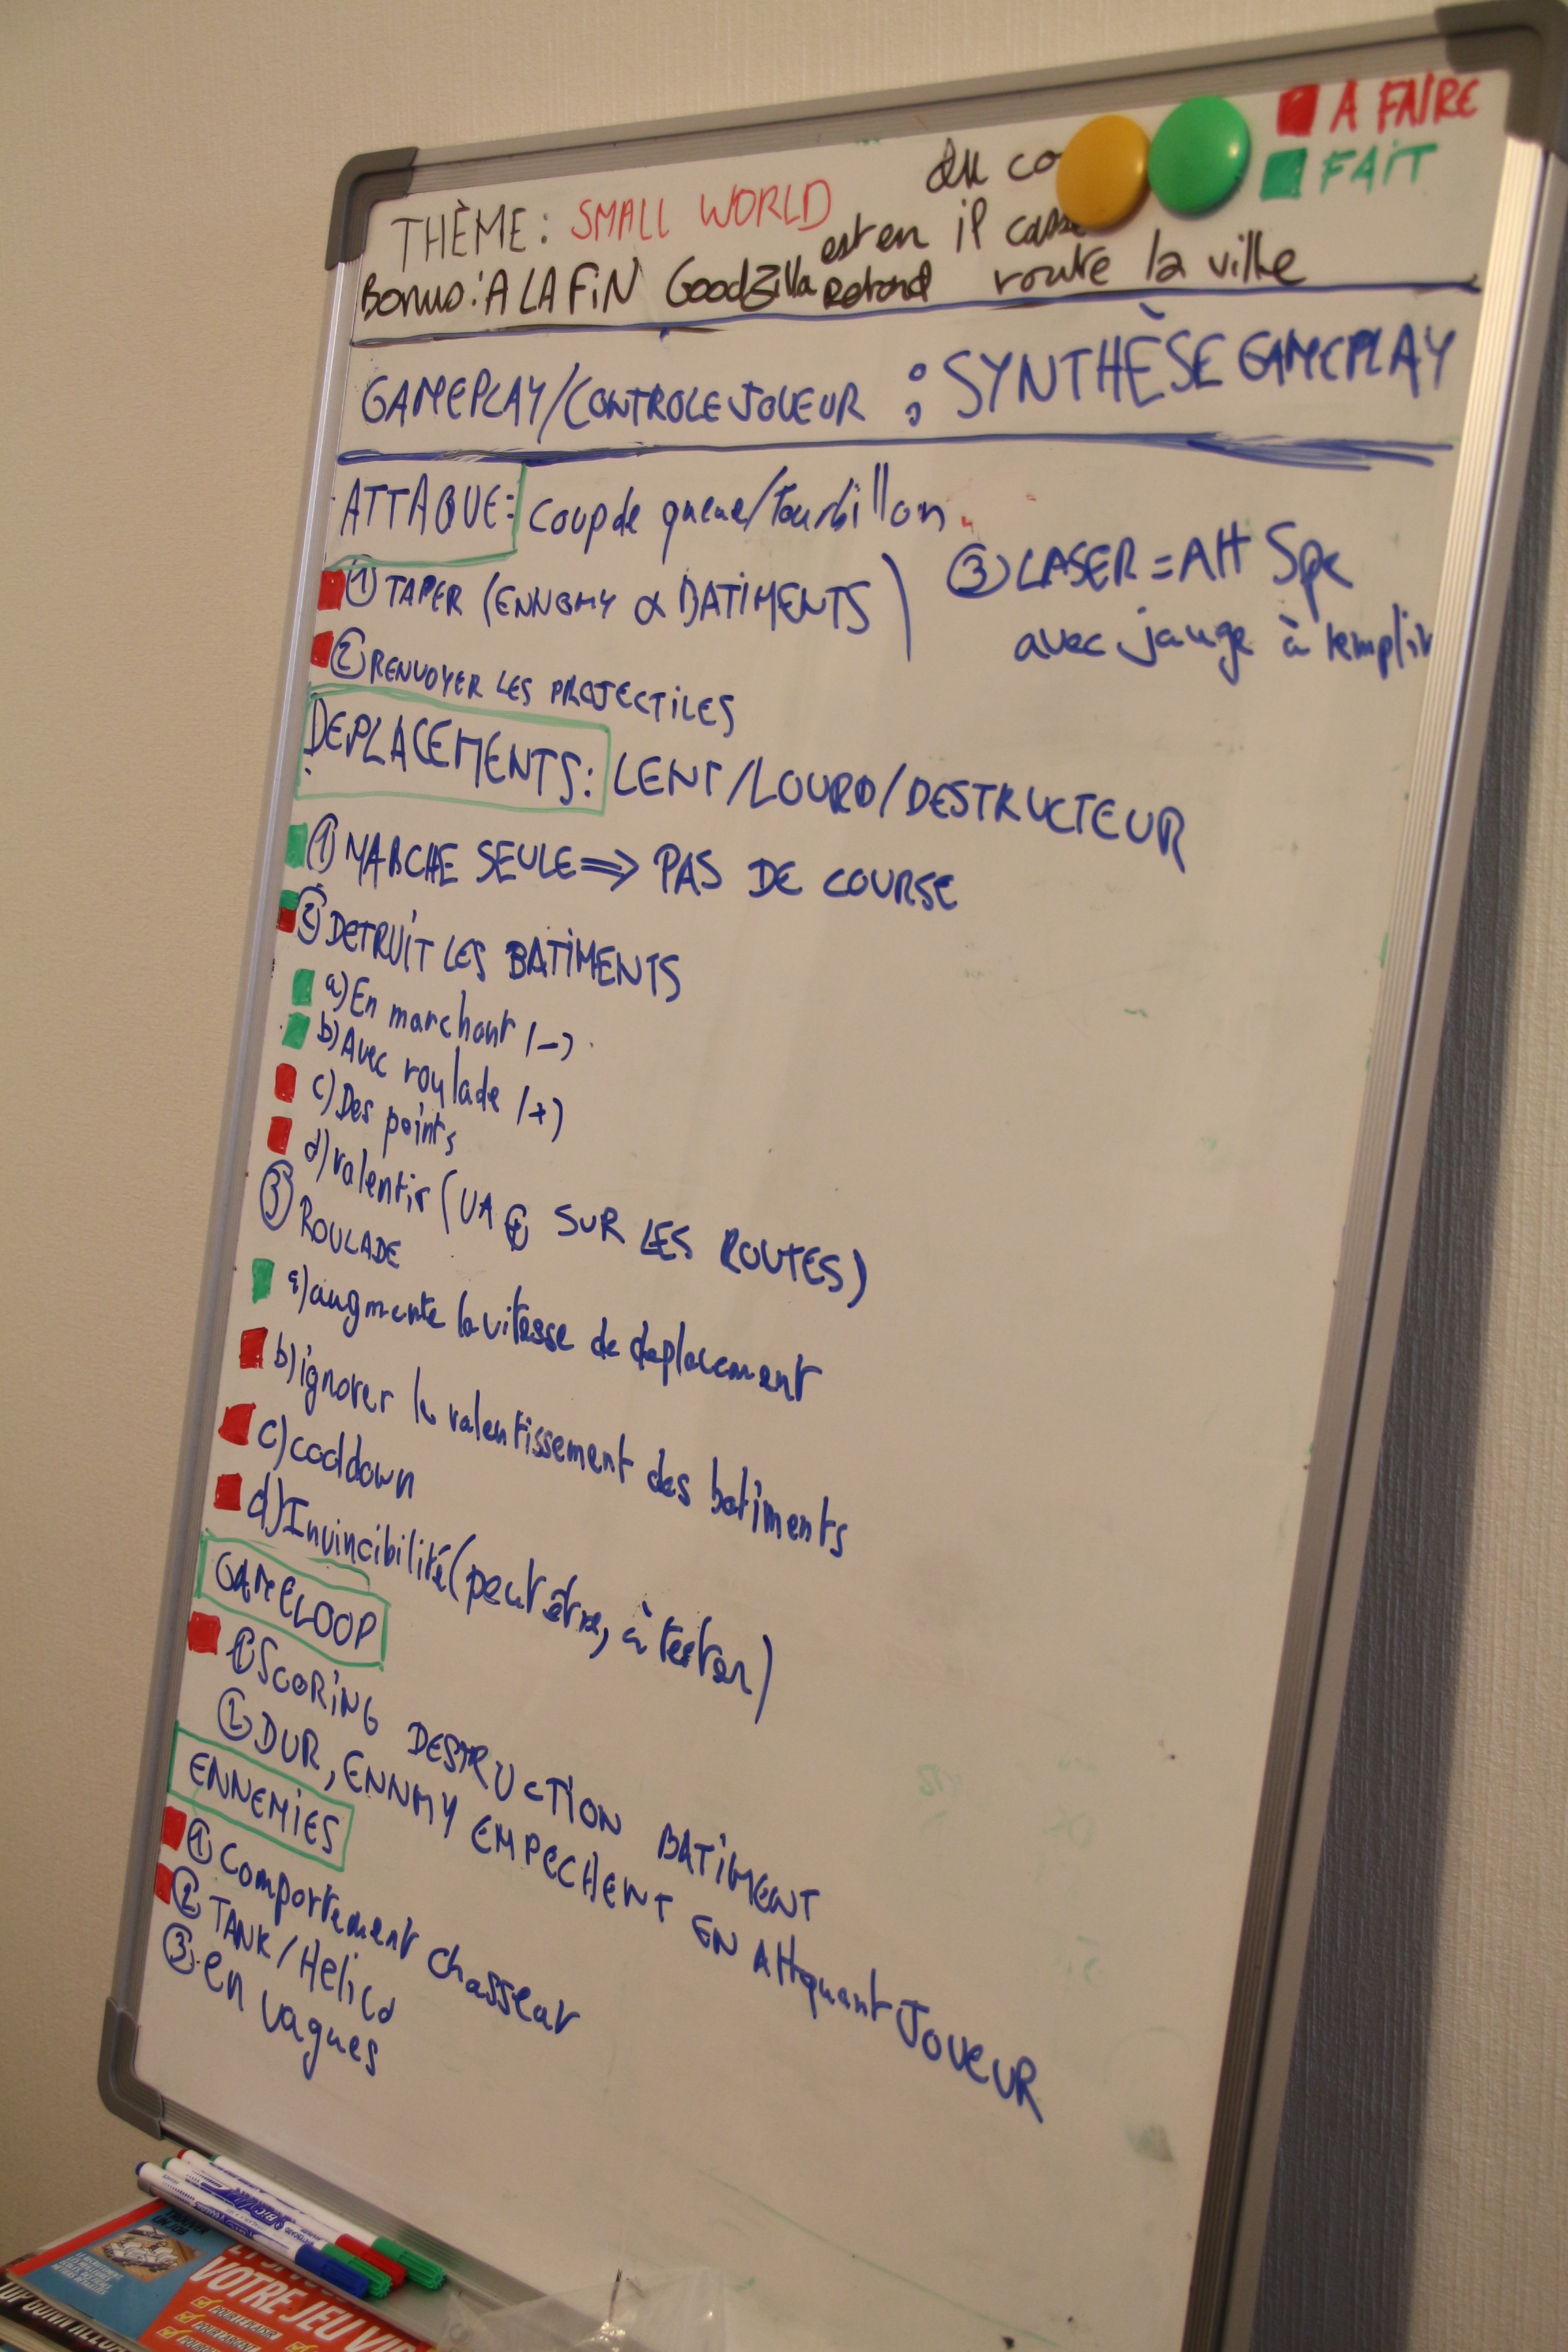 A FAIRE
FAIT
THÈME: SMALL WORLD
du co
est en il casse
Bonus: A LA FIN Goodzilla retard route la ville
GAMEPLAY/CONTROLE JOUEUR : SYNTHÈSE GAMEPLAY
ATTAQUE: coup de queue/tourbillon
① TAPER (ENNEMY & BATIMENTS)
② RENVOYER LES PROJECTILES
③ LASER = Att Spe
avec jauge à remplir
DEPLACEMENTS: LENT/LOURD/DESTRUCTEUR
① MARCHE SEULE => PAS DE COURSE
② DETRUIT LES BATIMENTS
a) En marchant (-)
b) Avec roulade (+)
c) Des points
d) ralentir (VA + SUR LES ROUTES)
③ ROULADE
a) augmente la vitesse de deplacement
b) ignorer le ralentissement des batiments
c) cooldown
d) Invincibilité (peut être, à tester)
GAMELOOP
① SCORING DESTRUCTION BATIMENT
② DUR, ENNMY EMPECHENT EN Attquant JOUEUR
ENNEMIES
① Comportement Chasseur
② TANK/Helico
③ en vagues
VOTRE JEU VI